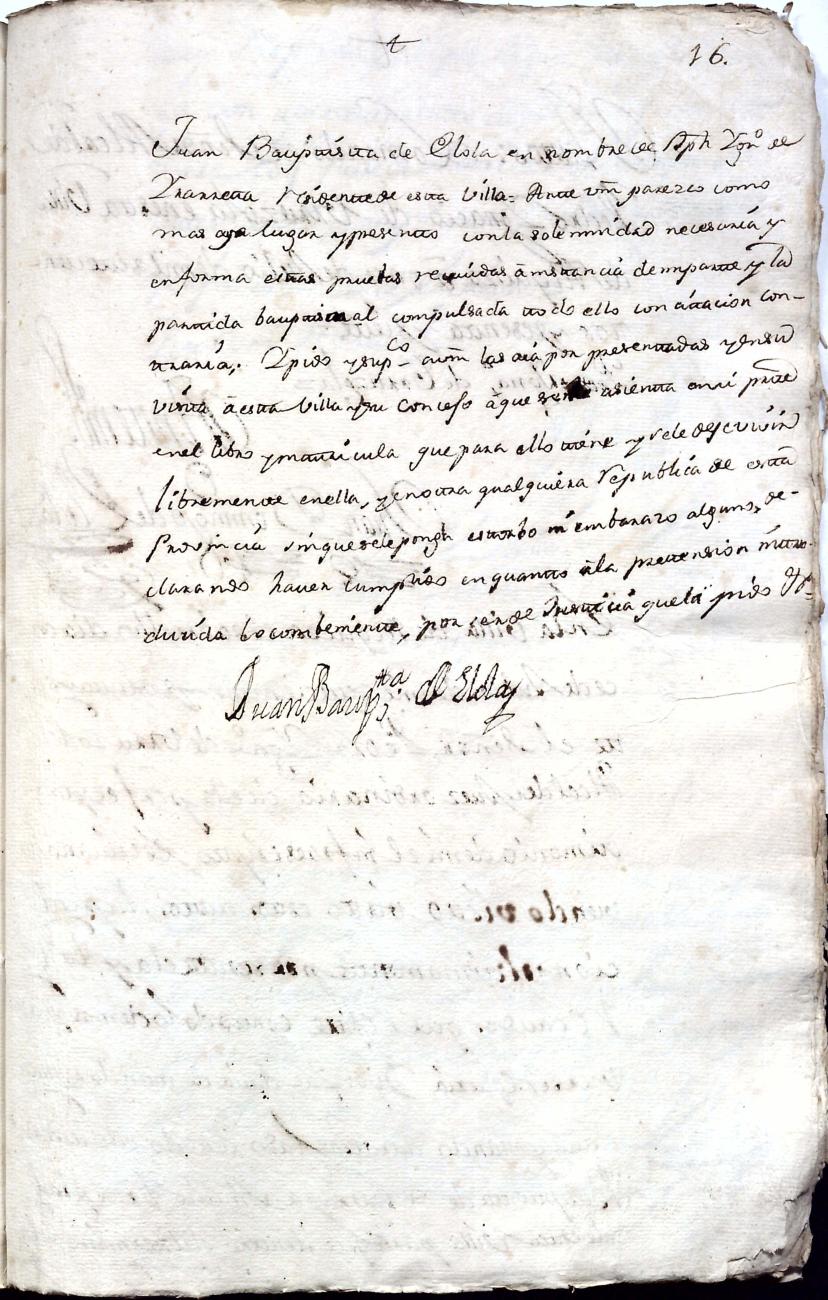 16.
Juan Bauptista de Elola en nombre de Jph Ygnº de
Yrarreta Residente de esta Villa = Ante Vm parezco como
mas aya lugar y presento con la solemnidad necesaria y
en forma estas pruebas recividas à instancia de mi parte y la
partida bauptismal compulsada todo ello con citacion con-
traria; Y pido y supco a vm las aia por presentadas y en su
vista à esta Villa y su Concejo à que asienta en mi parte
en el libro y matricula que para ello tiene y sele deje vivir
libremente en ella, y en otra qualquiera Republica de esta
Provincia sin que sele ponga estorbo ni embarazo alguno, de-
clarando haver cumplido en quanto à la pretension intro-
ducida lo combeniente, por ser de Justicia que la pido
Juan Baupta de Elola